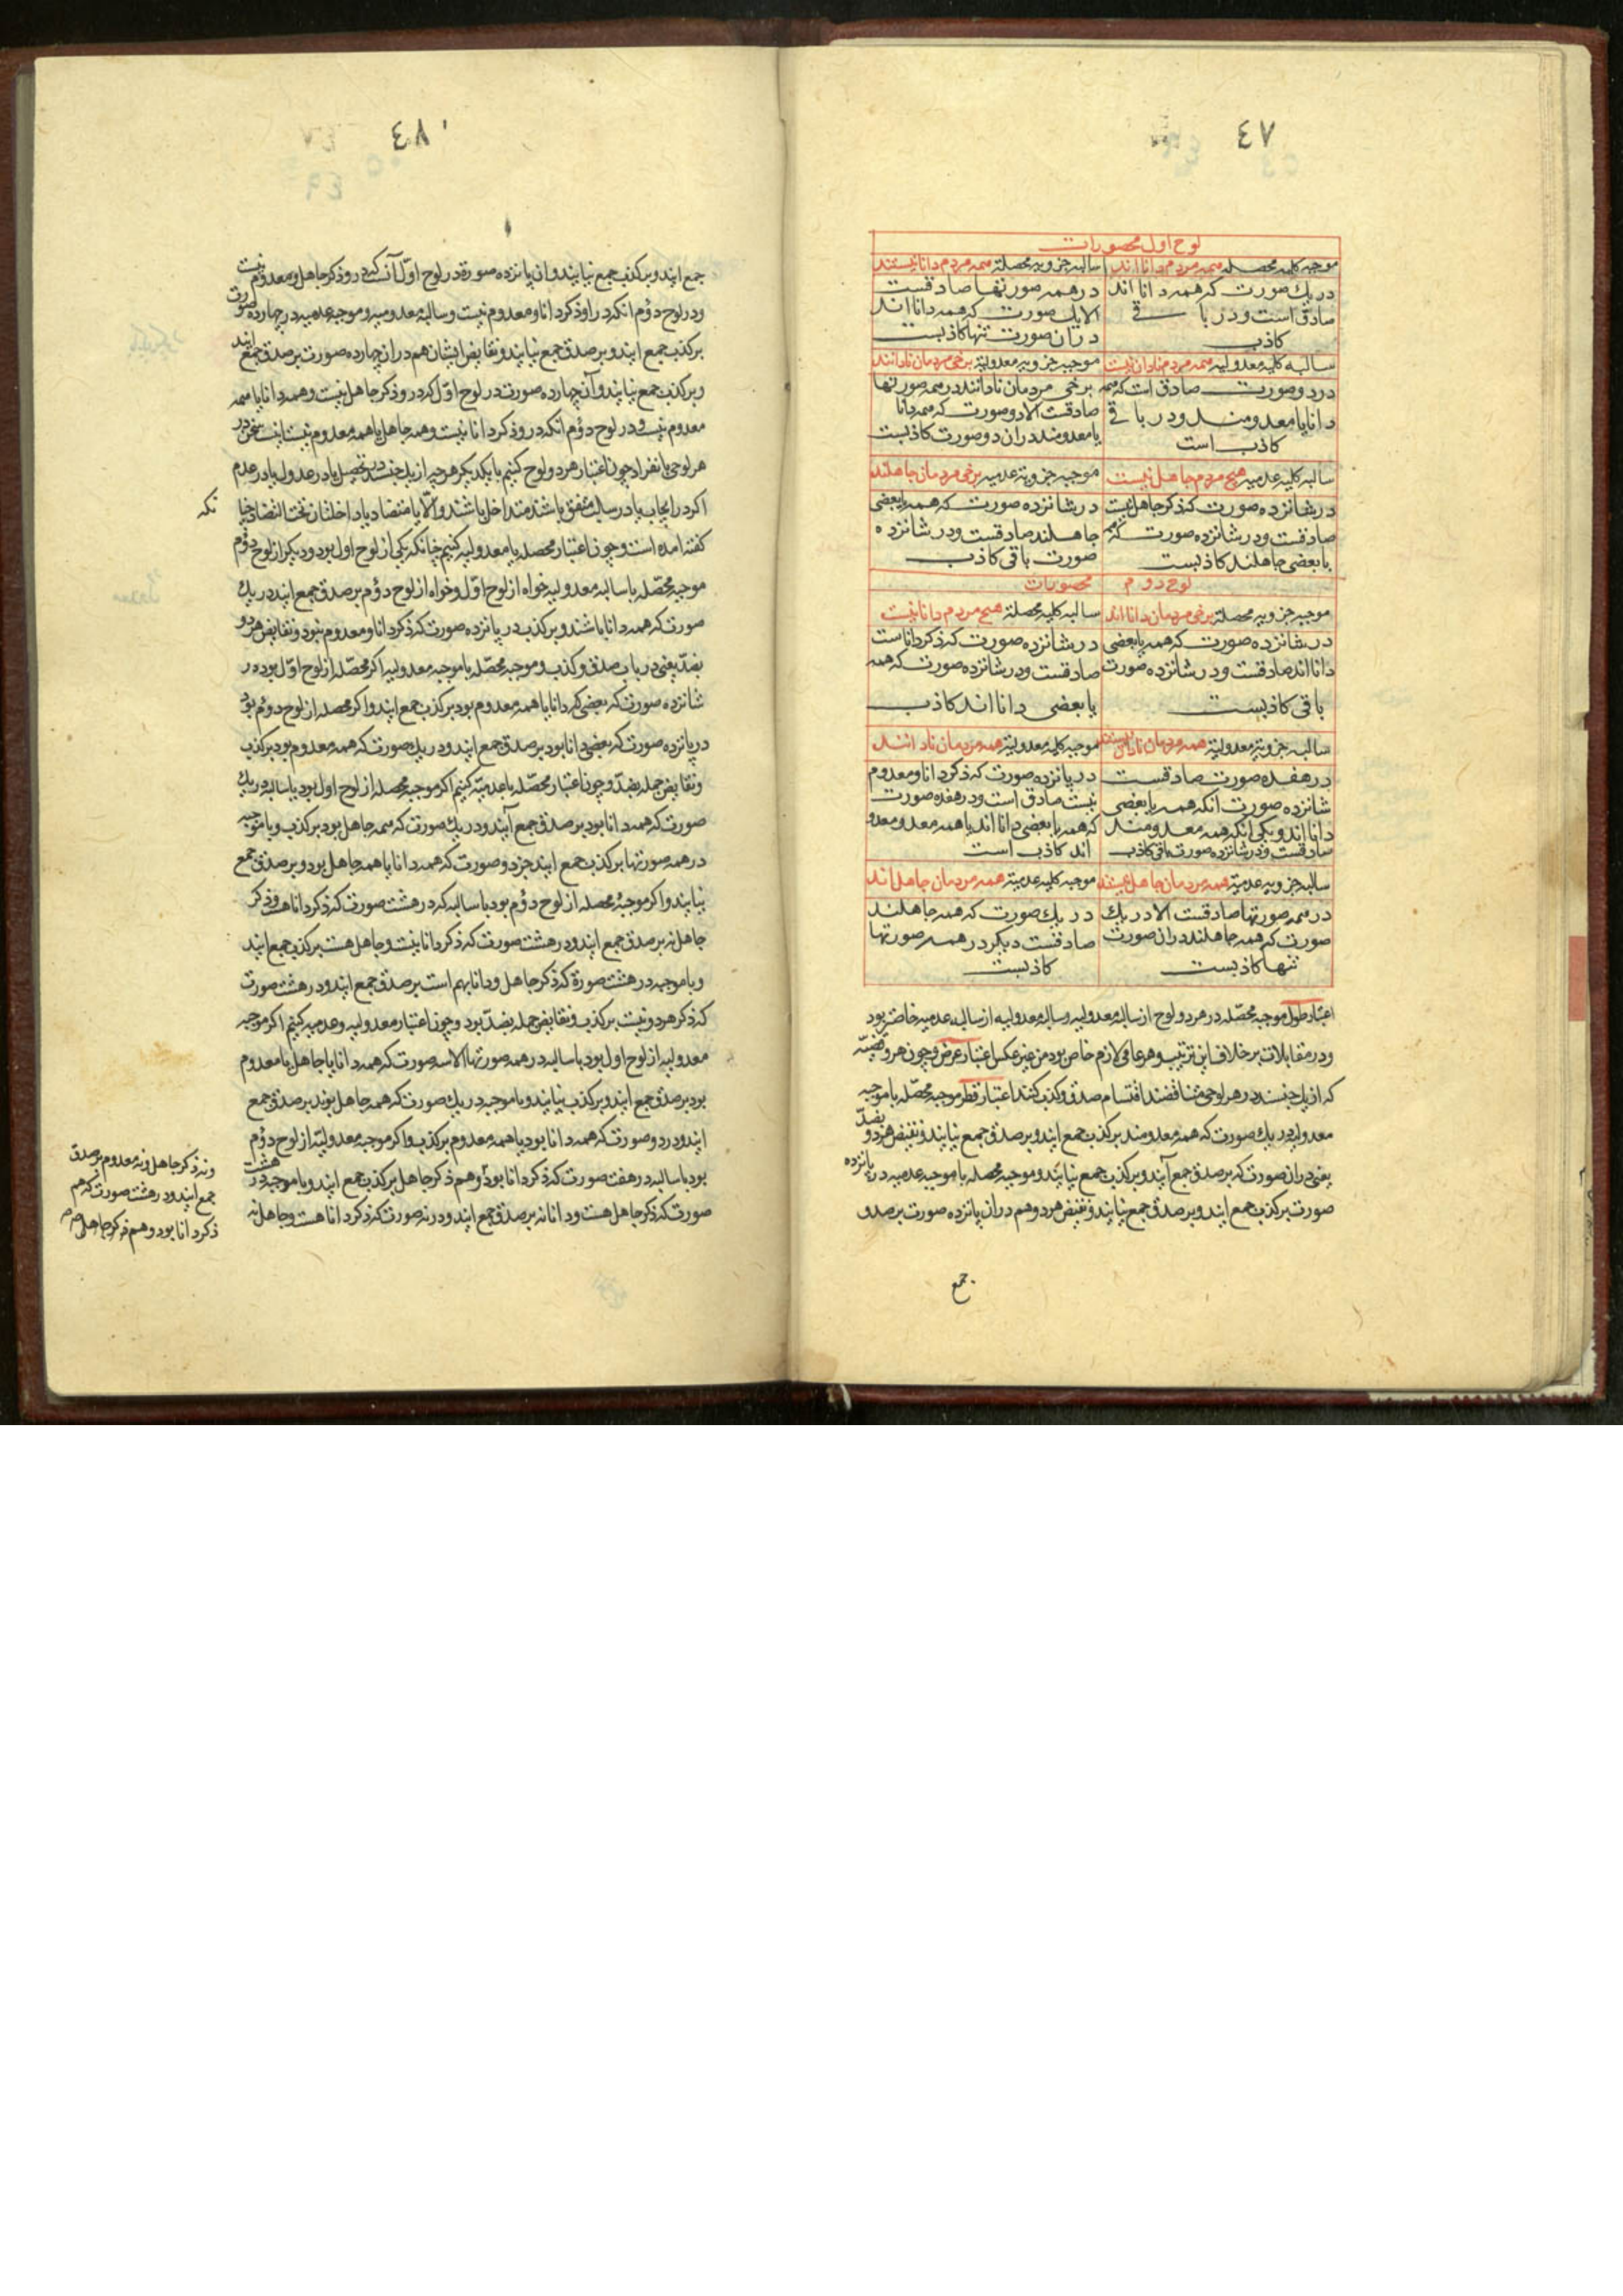 ٤٧
لوح اول محصورات
موجبه کلیه محصله همه مردم دانا اند
در یك صورت که همه دانا اند
صادق است و در با قی
کاذب
سالبه جزویه محصله همه مردم دانا نیستند
در همه صورتها صادقست
الا یك صورت که همه دانا اند
در ان صورت تنها کاذبست
سالبه کلیه معدولیه همه مردم نادان نیست
در دو صورت صادق است که همه
دانا یا معدومند و در با قی
کاذب است
موجبه جزویه معدولیه برخی مردمان نادانند
برخی مردمان نادانند در همه صورتها
صادقست الا دو صورت که همه دانا
یا معدومند در ان دو صورت کاذبست
سالبه کلیه عدمیه هیچ مردم جاهل نیست
در شانزده صورت که ذکر جاهل نیست
صادقست و در شانزده صورت که همه
یا بعضی جاهلند کاذبست
موجبه جزویه عدمیه برخی مردمان جاهلند
در شانزده صورت که همه یا بعضی
جاهلند صادقست و در شانزده
صورت باقی کاذب
لوح دوم محصورات
موجبه جزویه محصله برخی مردمان دانا اند
در شانزده صورت که همه یا بعضی
دانا اند صادقست و در شانزده صورت
باقی کاذبست
سالبه کلیه محصله هیچ مردم دانا نیست
در شانزده صورت که ذکر دانا ست
صادقست و در شانزده صورت که همه
یا بعضی دانا اند کاذب
سالبه جزویه معدولیه همه مردمان نادان نیستند
در هفده صورت صادقست
شانزده صورت انکه همه یا بعضی
دانا اند و یکی انکه همه معدومند
صادقست و در شانزده صورت باقی کاذب
موجبه کلیه معدولیه همه مردمان نادانند
در پانزده صورت که ذکر دانا و معدوم
نیست صادق است و در هفده صورت
که همه یا بعضی دانا اند یا همه معدومو
اند کاذب است
سالبه جزویه عدمیه همه مردمان جاهل نیستند
در همه صورتها صادقست الا در یك
صورت که همه جاهلند در ان صورت
تنها کاذبست
موجبه کلیه عدمیه همه مردمان جاهل اند
در یك صورت که همه جاهلند
صادقست دیکر در همه صورتها
کاذبست
اعتبار طول موجبه محصّله در هر دو لوح از سالبه معدولیه و سالبه معدولیه از سالبه عدمیه خاصتر بود
و در مقابلات بر خلاف این ترتیب و هر عامی لازم خاص بود من غیر عکس اعتبار عرض و چون هر دو قضیّه
که از یك جنسند در هر لوحی متناقضند اقتسام صدق و کذب کنند اعتبار قطر موجبه محصّله با موجبه
معدولیه در یك صورت که همه معدومند بر کذب جمع ایند و بر صدق جمع نیایند و نقیض هر دو بضدّ
یعنی در ان صورت که بر صدق جمع آیند و بر کذب جمع نیایند و موجبه محصله با موجبه عدمیه در پانزده
صورت بر کذب جمع ایند و بر صدق جمع نیایند و نقیض هر دو هم در ان پانزده صورت بر صدو
جمع
٤٨
جمع ایند و بر کذب جمع نیایند و ان پانزده صورة در لوح اوّل آنست که در و ذکر جاهل و معدوم نیست
و در لوح دوُم انکه در او ذکر دانا و معدوم نیست و سالبه معدومیه و موجبه عدمیه در چهارده صورت
بر کذب جمع ایند و بر صدق جمع نیایند و نقایض ایشان هم در ان چهارده صورت بر صدق جمع ایند
و بر کذب جمع نیایند و آن چهارده صورت در لوح اوّل که در و ذکر جاهل نیست و همه دانا یا همه
معدوم نیست و در لوح دوُم انکه در و ذکر دانا نیست و همه جاهل یا همه معدوم نیست اینست سخن در
هر لوحی بانفراد چون اعتبار هر دو لوح کنیم با یکدیکر هر چه از یك جنسند در تحصیل یا در عدول یا در عدم
اکر در ایجاب یا در سالب متفق باشند متداخل باشند و الّا یا متضاد یا داخلتان تحت التضاد چنا
نکه
کفته امده است و چون اعتبار محصله با معدولیه کنیم چنانکه یکی از لوح اول بود و دیکر از لوح دوُم
موجبه محصّله با سالبه معدولیه خواه از لوح اوّل و خواه از لوح دوُم بر صدق جمع ایند در یك
صورت که همه دانا باشند و بر کذب در پانزده صورت که ذکر دانا و معدوم نبود و نقایض هر دو
بضدّ یعنی در باب صدق و کذب و موجبه محصّله با موجبه معدولیه اکر محصّله از لوح اوّل بود در
شانزده صورت که بعضی که دانا یا همه معدوم بود بر کذب جمع ایند و اکر محصله از لوح دوُم بود
در پانزده صورت که بعضی دانا بود بر صدق جمع ایند و در یك صورت که همه معدوم بود بر کذب
و نقایض جمله بضدّ و چون اعتبار محصّله با عدمیّه کنیم اکر موجبه محصله از لوح اول بود با سالبه در یك
صورت که همه دانا بود بر صدق جمع آیند و در یك صورت که همه جاهل بود بر کذب و با موجبه
در همه صورتها بر کذب جمع ایند جز دو صورت که همه دانا یا همه جاهل بود و بر صدق جمع
نیایند و اکر موجبهٔ محصله از لوح دوُم بود با سالبه که در هشت صورت که ذکر دانا هست و ذکر
جاهل نه بر صدق جمع ایند و در هشت صورت که ذکر دانا نیست و جاهل هست بر کذب جمع ایند
و با موجبه در هشت صورة که ذکر جاهل و دانا بهم است بر صدق جمع ایند و در هشت صورت
که ذکر هر دو نیست بر کذب و نقایض جمله بضدّ بود و چون اعتبار معدولیه و عدمیه کنیم اکر موجبه
معدولیه از لوح اول بود با سالبه در همه صورتها الا سه صورت که همه دانا یا جاهل یا معدوم
بود بر صدق جمع ایند و بر کذب نیایند و با موجبه در یك صورت که همه جاهل بوند بر صدق جمع
ایند و در دو صورت که همه دانا بود یا همه معدوم بر کذب و اکر موجبه معدولیّه از لوح دوُم
بود با سالبه در هفت صورت که ذکر دانا بود و هم ذکر جاهل بر کذب جمع ایند و با موجبه در هشت
صورت که ذکر جاهل هست و دانا نه بر صدق جمع ایند و در نه صورت که ذکر دانا هست و جاهل نه
و نه ذکر جاهل و نه معدوم بر صدق
جمع ایند و در هشت صورت که هم
ذکر دانا بود و هم ذکر جاهل